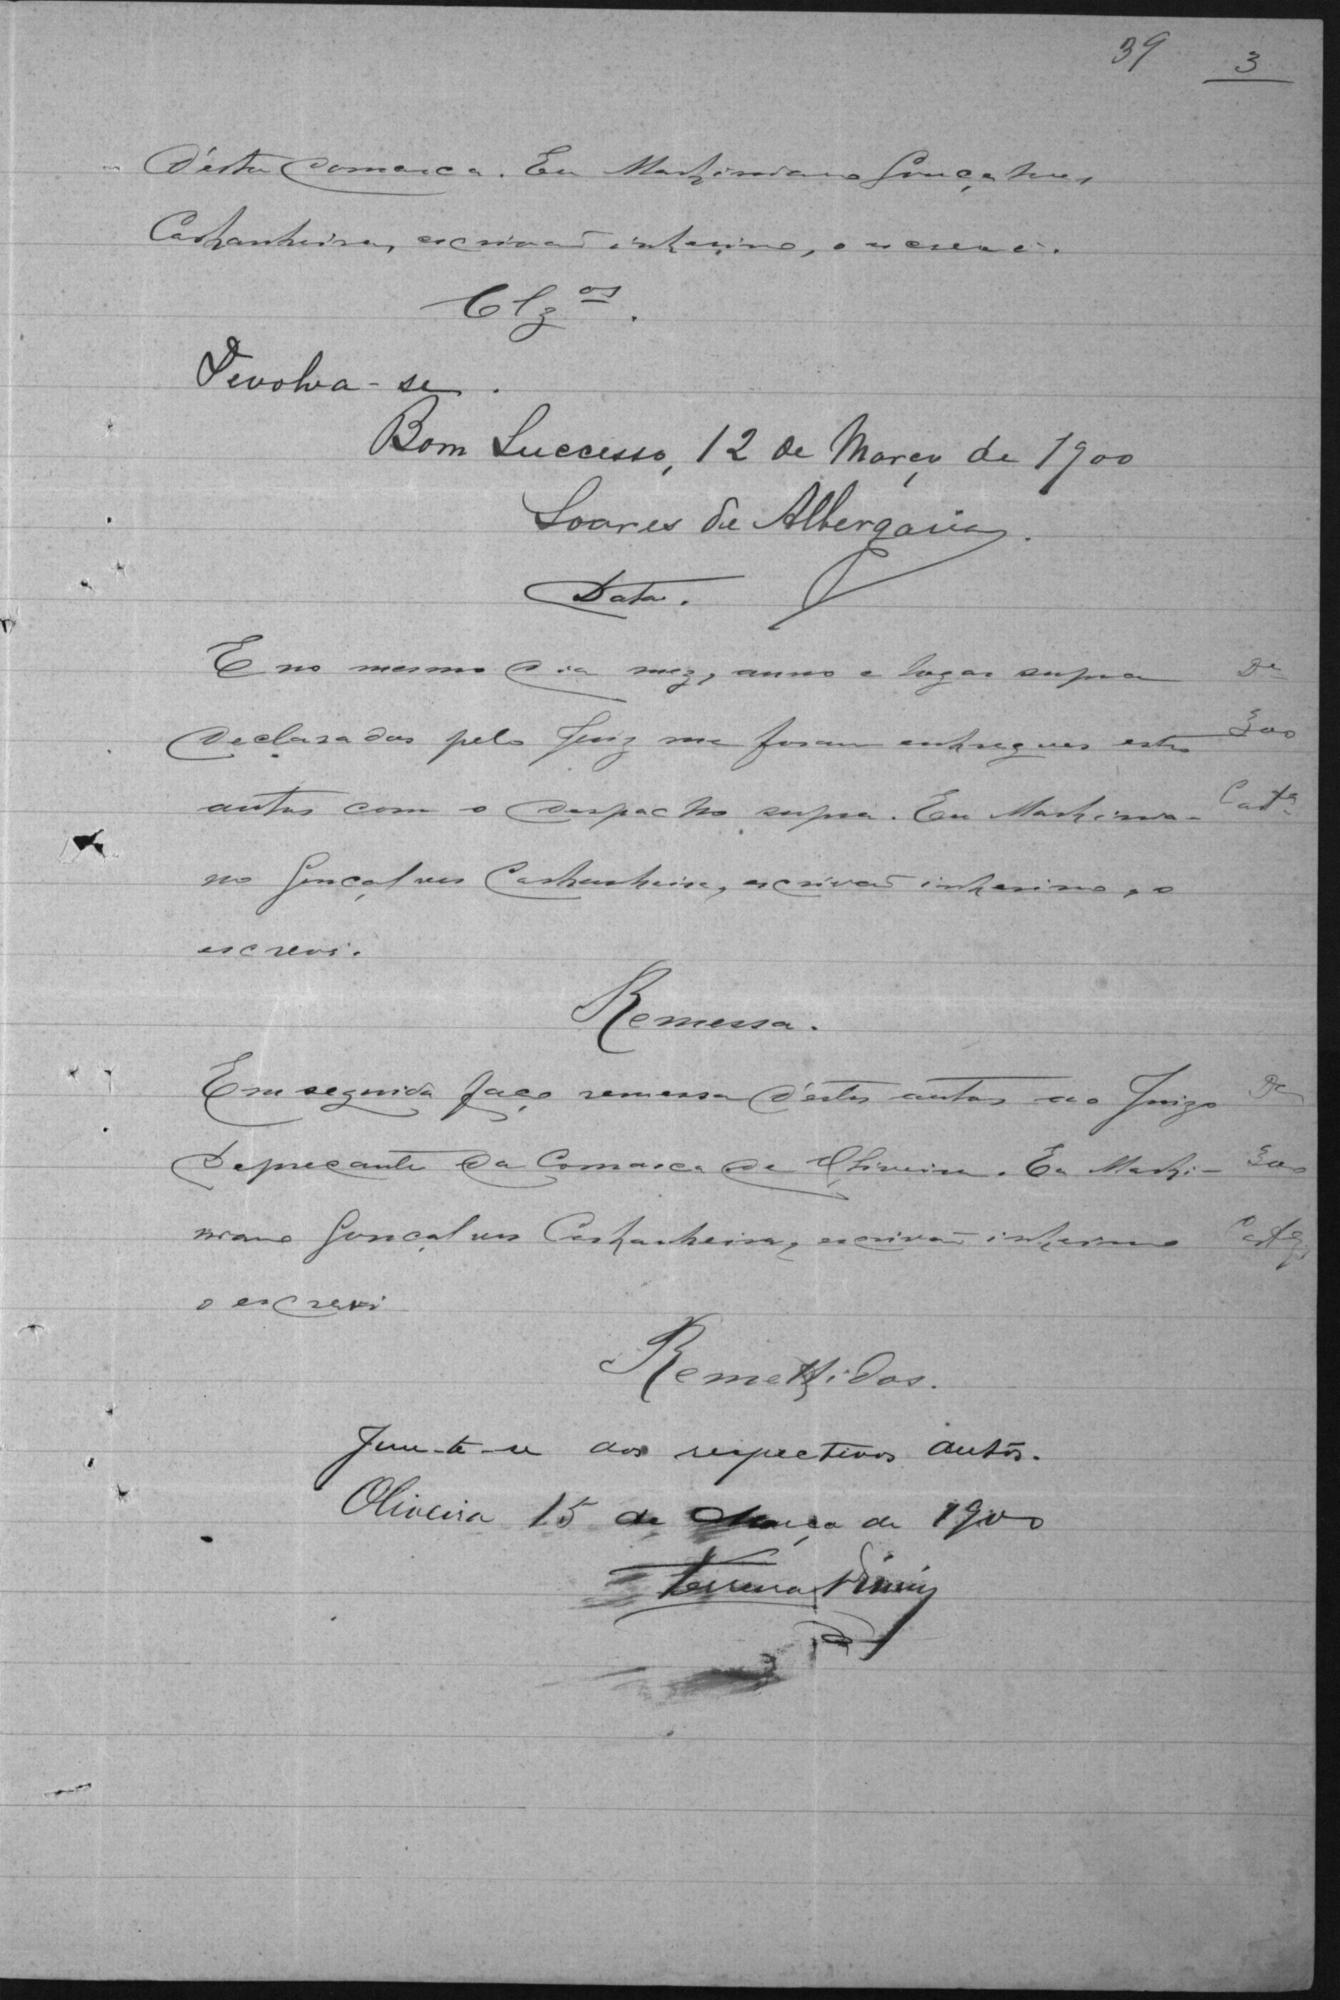 39 3
d'esta Comarca. Eu Maximiano Gonçalves
Castanheira, escrivaõ interino, o escrevi.
Clzos.
Devolva-se.
Bom Successo, 12 de Março de 1900
Soares de Albergaria.
Data.
E no mesmo dia mez, anno e lugar supra De
declarados pelo Juiz me foram entregues estes 300
autos com o despacho supra. Eu Maximia- Casta
no Gonçalves Castanheira, escrivaõ interino, o
escrevi.
Remessa.
Em seguida faço remessa d'estes autos ao Juizo De
Deprecante da Comarca de Oliveira. Eu Maxi- 300
miano Gonçalves Castanheira, escrivaõ interino Casta
o escrevi
Remettidos.
Junte-se aos respectivos autos.
Oliveira 15 de Março de 1900